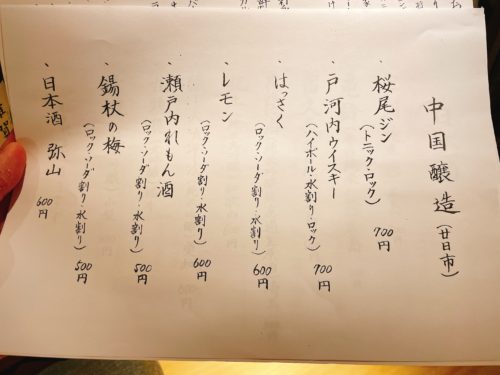 中国醸造(廿日市)
・桜尾ジン
(トニック・ロック)
700円
・戸河内ウイスキー
(ハイボール・水割り・ロック)
700円
・はっさく
(ロック・ソーダ割り・水割り)
600円
・レモン
(ロック・ソーダ割り・水割り)
600円
・瀬戸内れもん酒
(ロック・ソーダ割り・水割り)
500円
・錫杖の梅
(ロック・ソーダ割り・水割り)
500円
・日本酒 弥山
600円